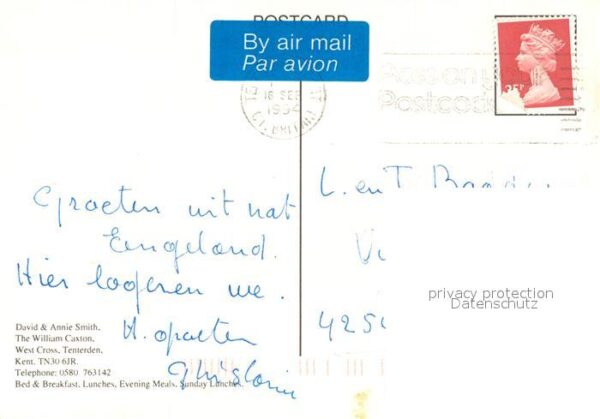 POSTCARD
By air mail
Par avion
16 SEP
1994
Pass on you
Postcode
Groeten uit nat
Eengeland.
Hier logeren we.
H. groeten
Ghislain
David & Annie Smith,
The William Caxton,
West Cross, Tenterden,
Kent. TN30 6JR.
Telephone: 0580 763142
Bed & Breakfast, Lunches, Evening Meals, Sunday Lunches.
L. en T.
425
privacy protection
Datenschutz